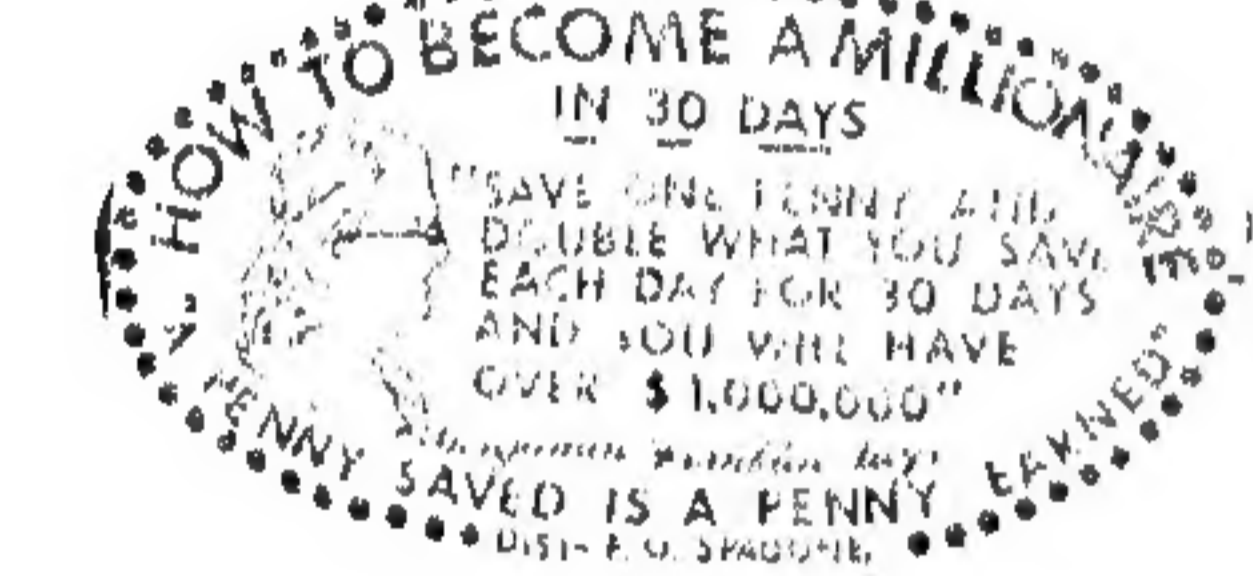 HOW TO BECOME A MILLIONAIRE
IN 30 DAYS
"SAVE ONE PENNY AND
DOUBLE WHAT YOU SAVE
EACH DAY FOR 30 DAYS
AND YOU WILL HAVE
OVER $1,000,000"
"A PENNY SAVED IS A PENNY EARNED"